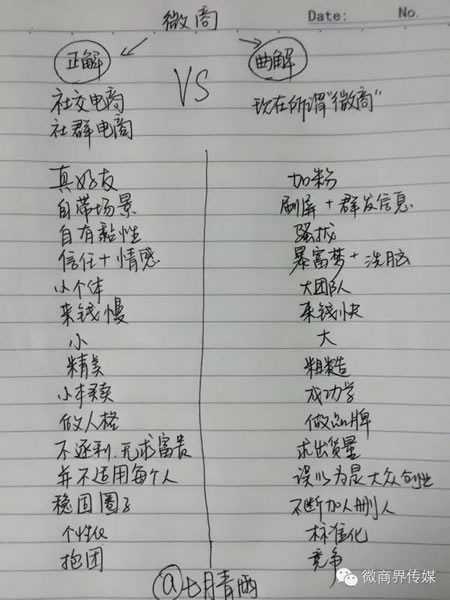 微商
Date: No.
正解 曲解
VS
社交电商 现在所谓“微商”
社群电商
真好友 加粉
自带场景 刷屏+群发信息
自有黏性 骚扰
信任+情感 暴富梦+洗脑
小个体 大团队
来钱慢 来钱快
小 大
精美 粗糙
小本买卖 成功学
做人格 做品牌
不逐利.无求富贵 求出货量
并不适用每个人 误以为是大众创业
稳固圈子 不断加人删人
个性化 标准化
抱团 竞争
@七月青雨
微商界传媒